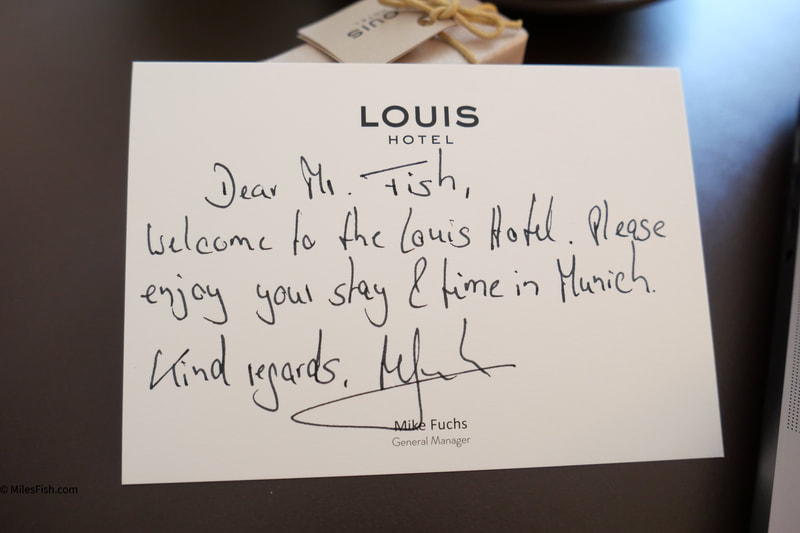 LOUIS
HOTEL
LOUIS
HOTEL
Dear Mr. Fish,
Welcome to the Louis Hotel. Please
enjoy your stay & time in Munich.
Kind regards,
Mike Fuchs
General Manager
© MilesFish.com